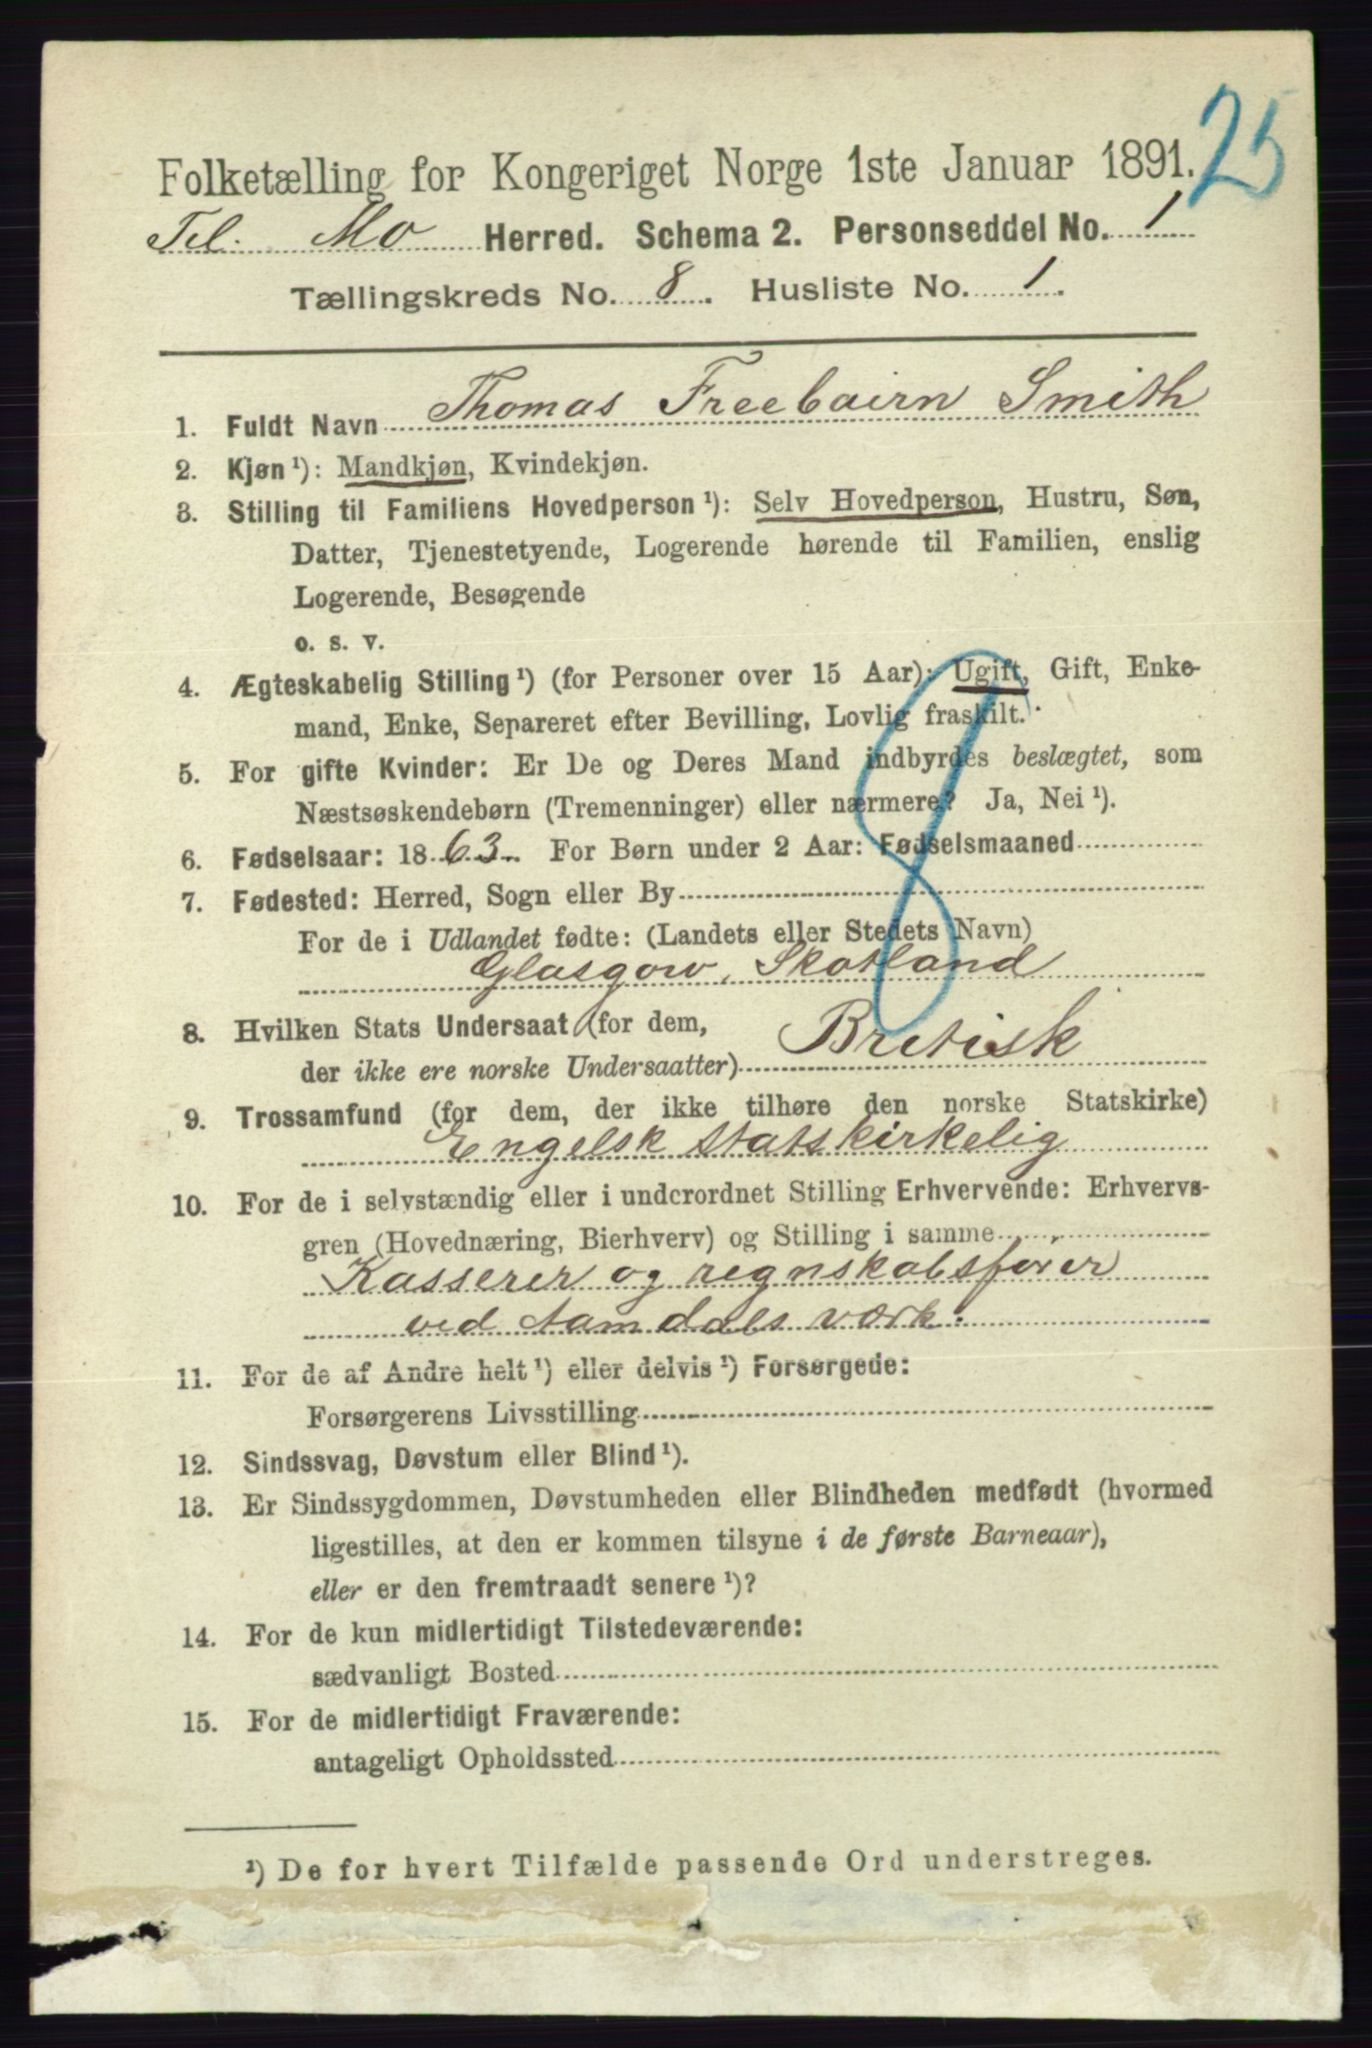 25
Folketælling for Kongeriget Norge 1ste Januar 1891.
Tel. Mo Herred. Schema 2. Personseddel No. 1
Tællingskreds No. 8. Husliste No. 1.
1. Fuldt Navn Thomas Freebairn Smith
2. Kjøn¹): Mandkjøn, Kvindekjøn.
3. Stilling til Familiens Hovedperson¹): Selv Hovedperson, Hustru, Søn,
Datter, Tjenestetyende, Logerende hørende til Familien, enslig
Logerende, Besøgende
o. s. v.
4. Ægteskabelig Stilling¹) (for Personer over 15 Aar): Ugift, Gift, Enke-
mand, Enke, Separeret efter Bevilling, Lovlig fraskilt.
5. For gifte Kvinder: Er De og Deres Mand indbyrdes beslægtet, som
Næstsøskendebørn (Tremenninger) eller nærmere? Ja, Nei¹).
6. Fødselsaar: 1863. For Børn under 2 Aar: Fødselsmaaned
7. Fødested: Herred, Sogn eller By
For de i Udlandet fødte: (Landets eller Stedets Navn)
Glasgow, Skotland
8. Hvilken Stats Undersaat (for dem,
der ikke ere norske Undersaatter) Bretisk
9. Trossamfund (for dem, der ikke tilhøre den norske Statskirke)
Engelsk statskirkelig
10. For de i selvstændig eller i underordnet Stilling Erhvervende: Erhvervs-
gren (Hovednæring, Bierhverv) og Stilling i samme
Kasserer og regnskabsfører
ved Aamdals værk.
11. For de af Andre helt¹) eller delvis¹) Forsørgede:
Forsørgerens Livsstilling
12. Sindssvag, Døvstum eller Blind¹).
13. Er Sindssygdommen, Døvstumheden eller Blindheden medfødt (hvormed
ligestilles, at den er kommen tilsyne i de første Barneaar),
eller er den fremtraadt senere¹)?
14. For de kun midlertidigt Tilstedeværende:
sædvanligt Bosted
15. For de midlertidigt Fraværende:
antageligt Opholdssted
¹) De for hvert Tilfælde passende Ord understreges.